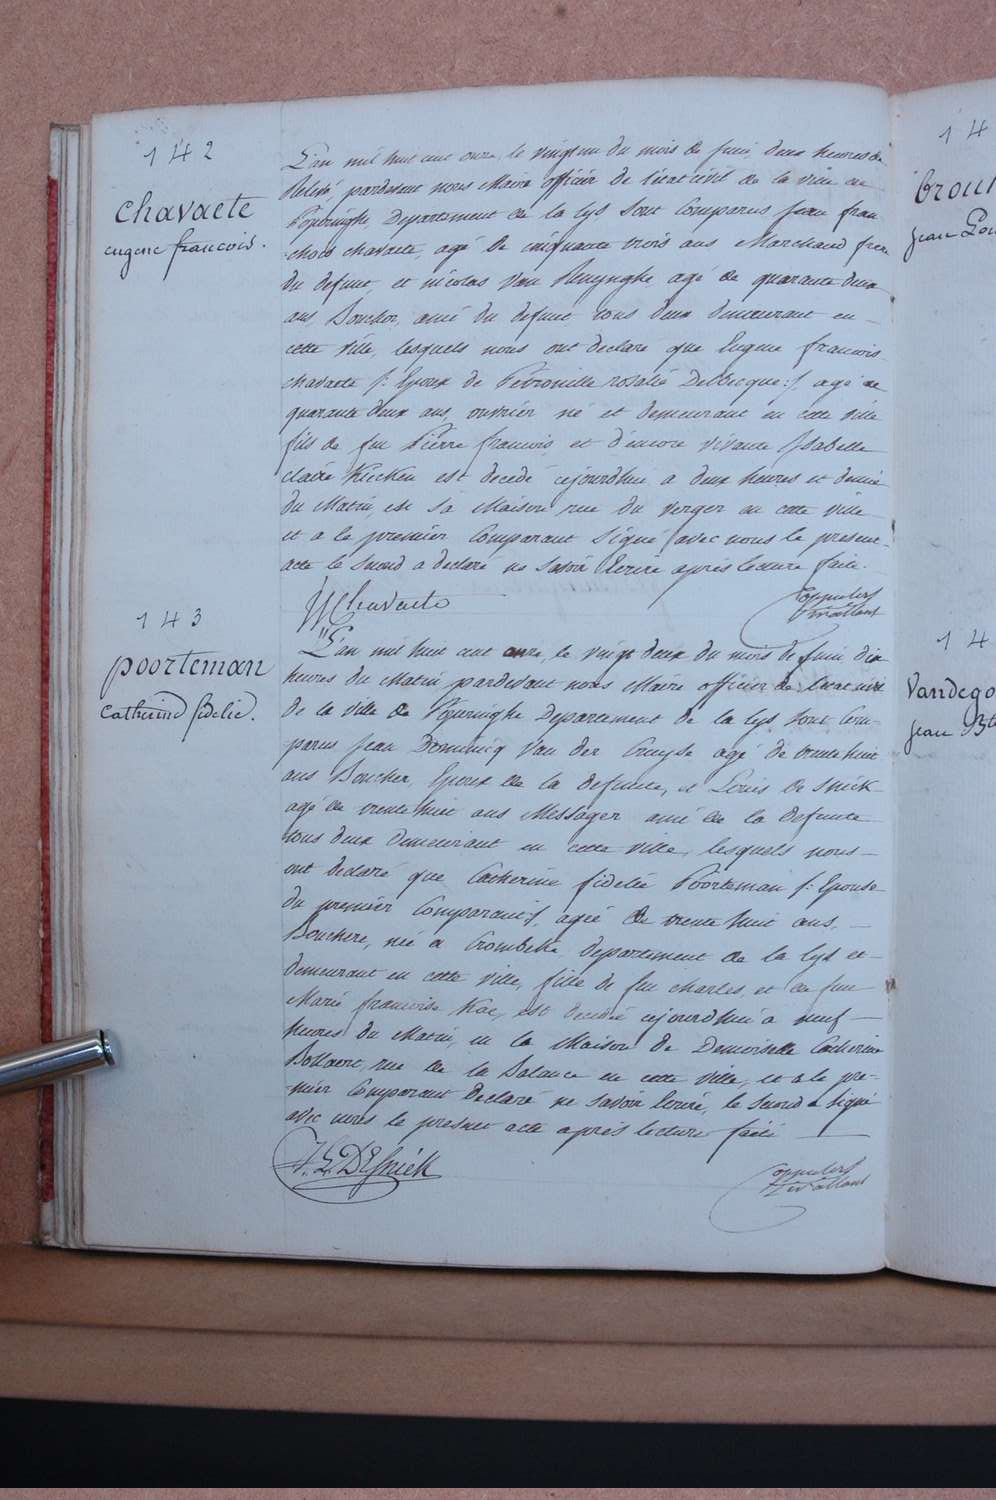 142
chavaete
eugene francois.
L'an mil huit cent onze, le vingt un du mois de Juin deux heures de
Relevé, pardevant nous Maire officier de l'état civil de la ville de
Poperinghe, Departement de la Lys sont Comparus Jean fran
chois chavaete, agé de cinquante trois ans Marchand frere
du defunt, et nicolas Van Renynghe, agé de quarante deux
ans, Boucher, ami du defunt tous deux demeurant en
cette ville, lesquels nous ont declaré que Eugene francois
chavaete /: Epoux de Pétronille rosalie Delbecque :/ agé de
quarante deux ans, ouvrier né et demeurant en cette ville
fils de feu Pierre francois, et d'encore vivante Isabelle
claire Kiecken est decedé cejourdhui a deux heures et demie
du Matin, en sa Maison rue du verger en cette ville
et a le premier Comparant signé avec nous le present
acte le second a declaré ne savoir Ecrire après lecture faite.
Chavaete
143
poorteman
catherine fidelie.
L'an mil huit cent onze, le vingt deux du mois de Juin dix
heures du Matin pardevant nous Maire officier de l'état civil
de la ville de Poperinghe Departement de la Lys sont Com-
parus Jean Dominicq Van der Cruyse agé de trente huit
ans Boucher, Epoux de la defunte, et Louis de Snick
agé de trente huit ans Messager ami de la defunte
tous deux Demeurant en cette ville, lesquels nous
ont declaré que Catherine fidelie Poorteman /: Epouse
du premier Comparant :/, agée de trente huit ans,
Bouchere, née a Crombeke departement de la Lys et
demeurant en cette ville, fille de feu charles, et de feu
Marie francoise Kae, est decedée cejourdhui a neuf
heures du Matin, en la Maison de Demoiselle Catherine
Bollaert, rue de la Balance en cette ville, et a le pre-
mier Comparant declaré ne savoir Ecrire, le second a signé
avec nous le present acte après lecture faite
14
brout
Jean
14
Vandego
Jean Bte